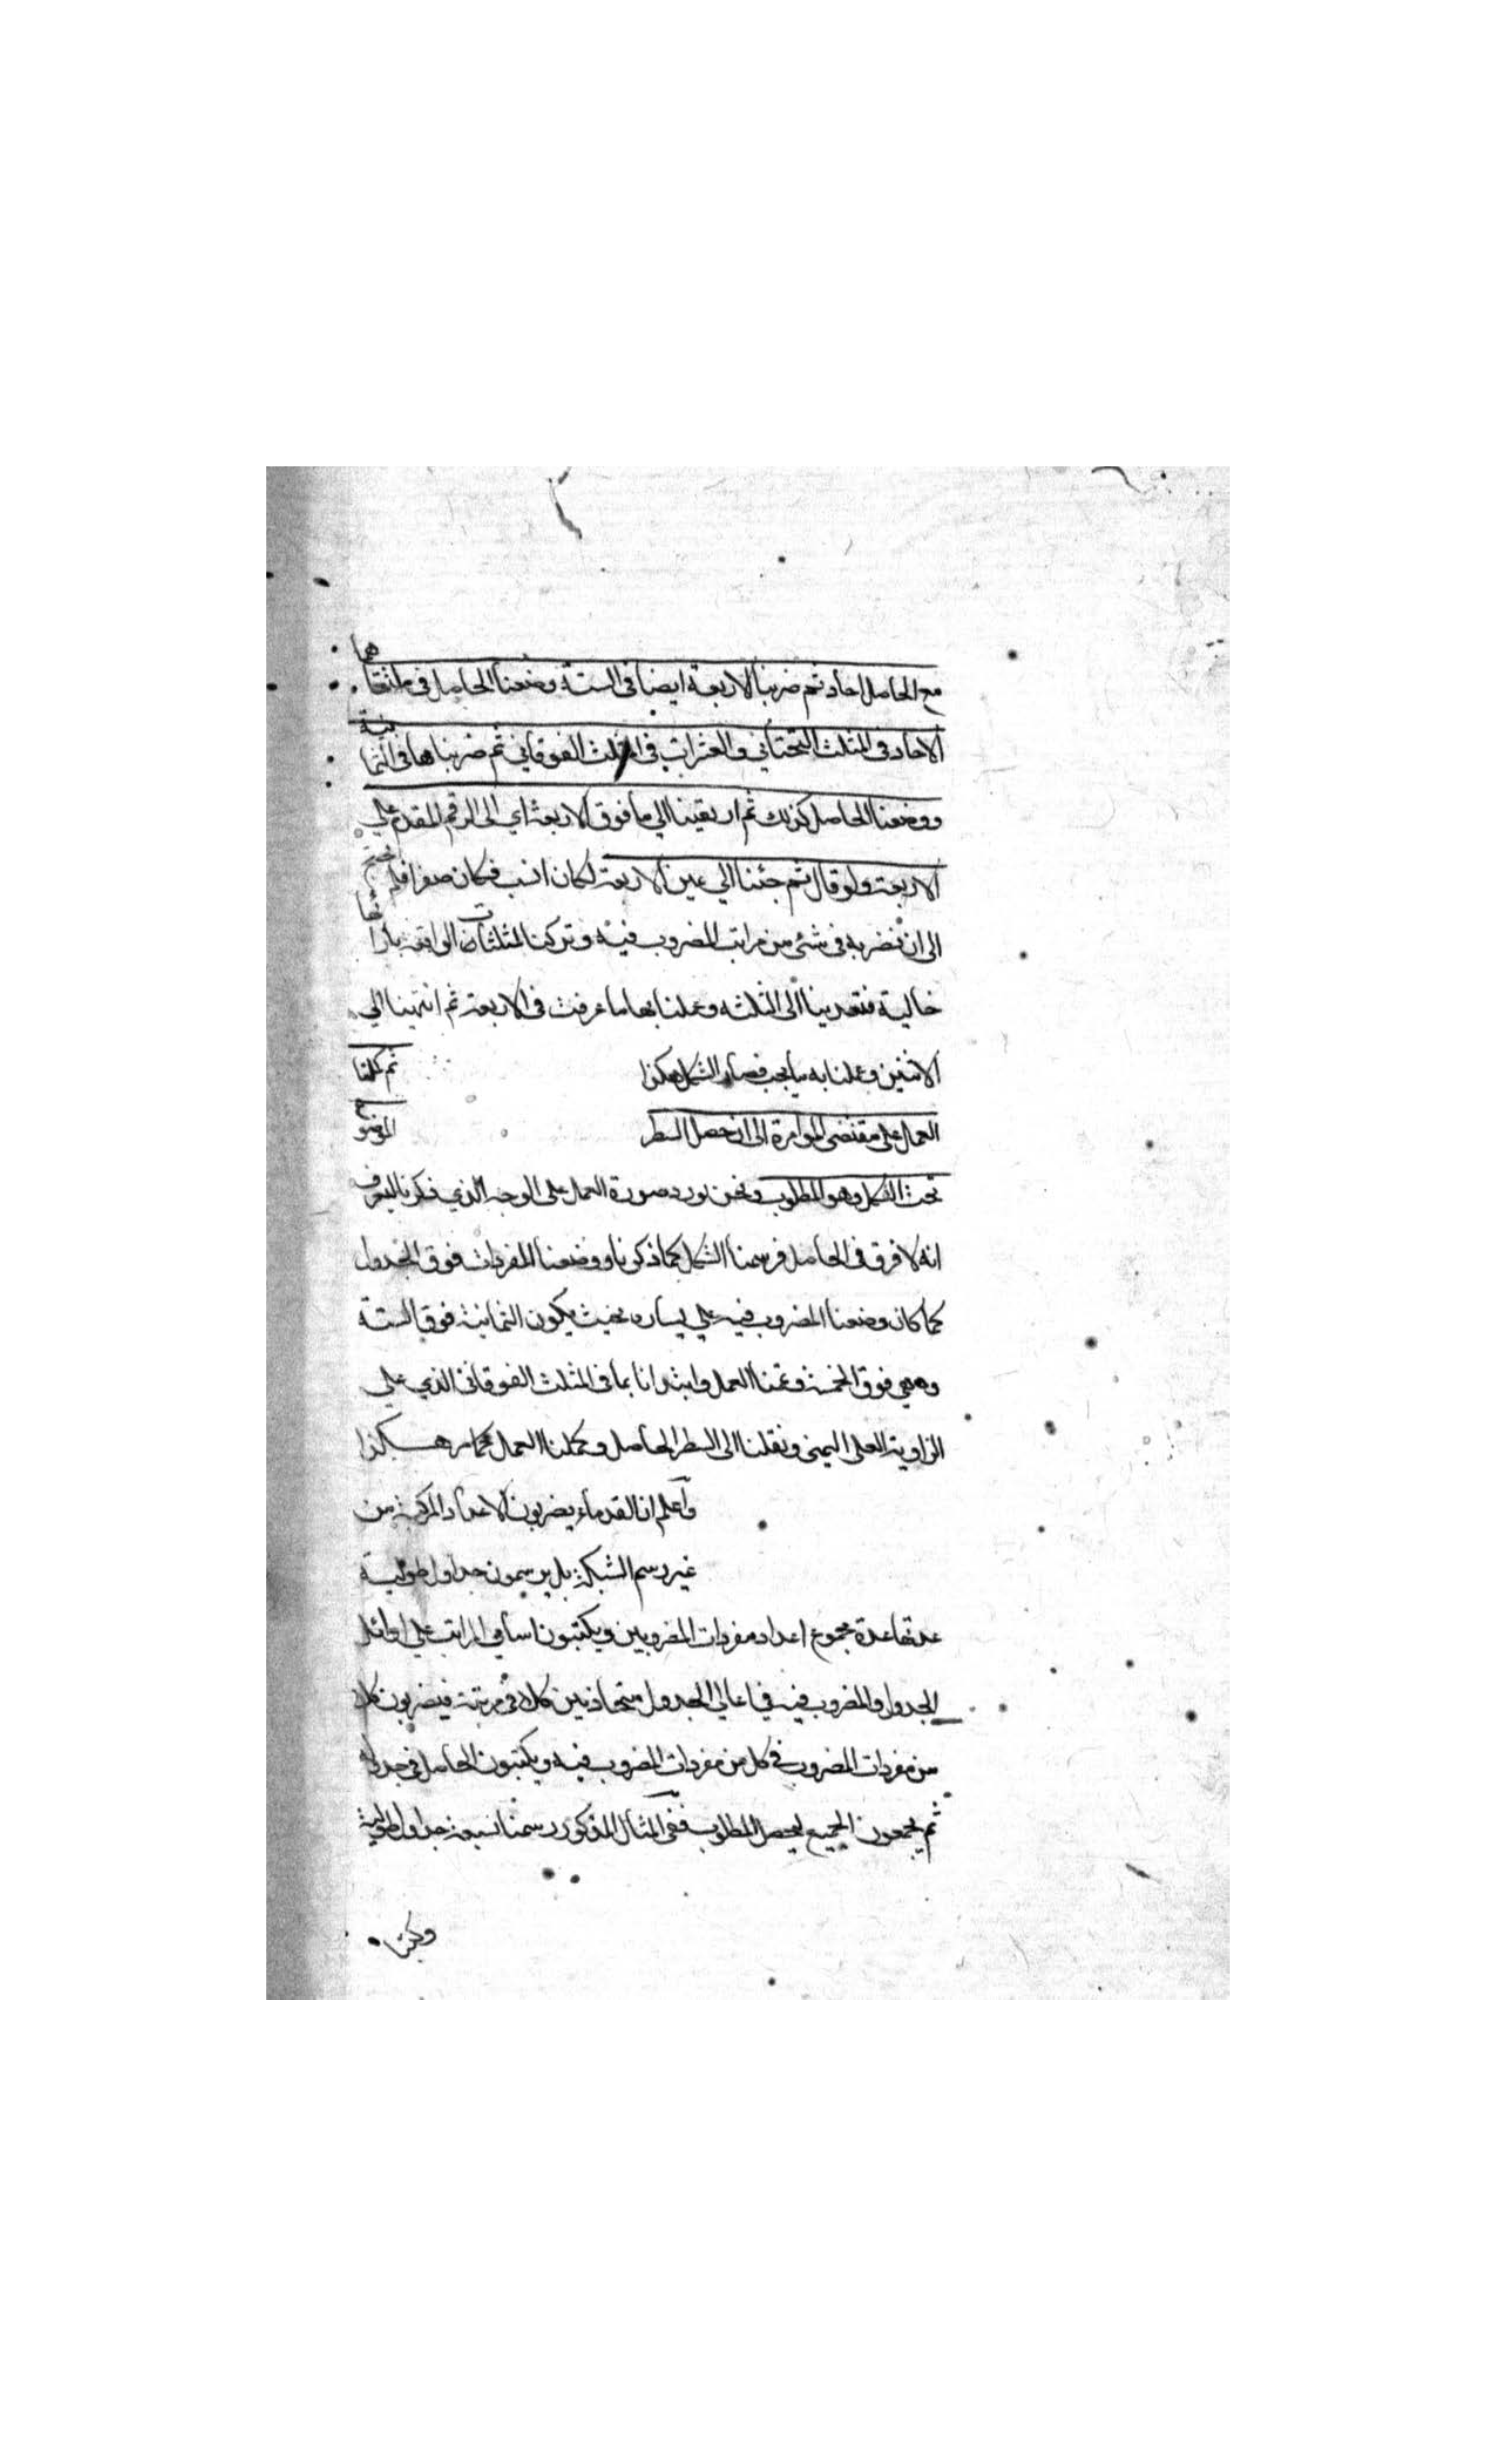 مع الحاصل احاد ثم ضربنا الاربعة ايضا فى الستة وضعنا الحاصل فى ملتقاهما
الاحاد فى المثلث التحتاني والعشرات فى المثلث الفوقاني ثم ضربناها فى الثمانية
ووضعنا الحاصل كذلك ثم ارتقينا الي ما فوق الاربعة اي الى الرقم المقدم علي
الاربعة ولو قال ثم جئنا الي عين الاربعة لكان انسب فكان صفرا فلم نحتج
الى ان نضربه فى شئ من مراتب المضروب فيه وتركنا المثلثات الواقعة بازائها
خالية فتعدينا الى الثلثه وعملنا بها ما عرفت فى الاربعة ثم انتهينا الي
الاثنين وعملنا به ما يجب فصار الشكل هكذا ثم كملنا
العمل على مقتضى المؤامرة الى ان حصل السطر الموضوع
تحت الشكل وهو المطلوب ونحن نورد صورة العمل على الوجه الذي ذكرنا ليعرف
انه لا فرق فى الحاصل فرسمنا الشكل كما ذكرنا ووضعنا المفردات فوق الجدول
كما كان وضعنا المضروب فيه علي يساره بحيث يكون الثمانية فوق الستة
وهي فوق الخمسة وتممنا العمل وابتدانا بما فى المثلث الفوقانى الذي على
الزاوية العليا اليمنى ونقلنا الى السطر الحاصل وكملنا العمل كما مر هكذا
واعلم ان القدماء يضربون الاعداد المركبة من
غير رسم الشبكة بل يرسمون جداول طولية
عدتها عدة مجموع اعداد مفردات المضروبين ويكتبون اسامي المراتب علي اوائل
الجدول والمضروب فيه في اعالي الجدول متحاذيين كلا فى مرتبته فيضربون كلا
من مفردات المضروب فى كل من مفردات المضروب فيه ويكتبون الحاصل فى جدوله
ثم يجمعون الجميع ليحصل المطلوب ففى المثال المذكور رسمنا سبعة جداول طولية
وكتبنا